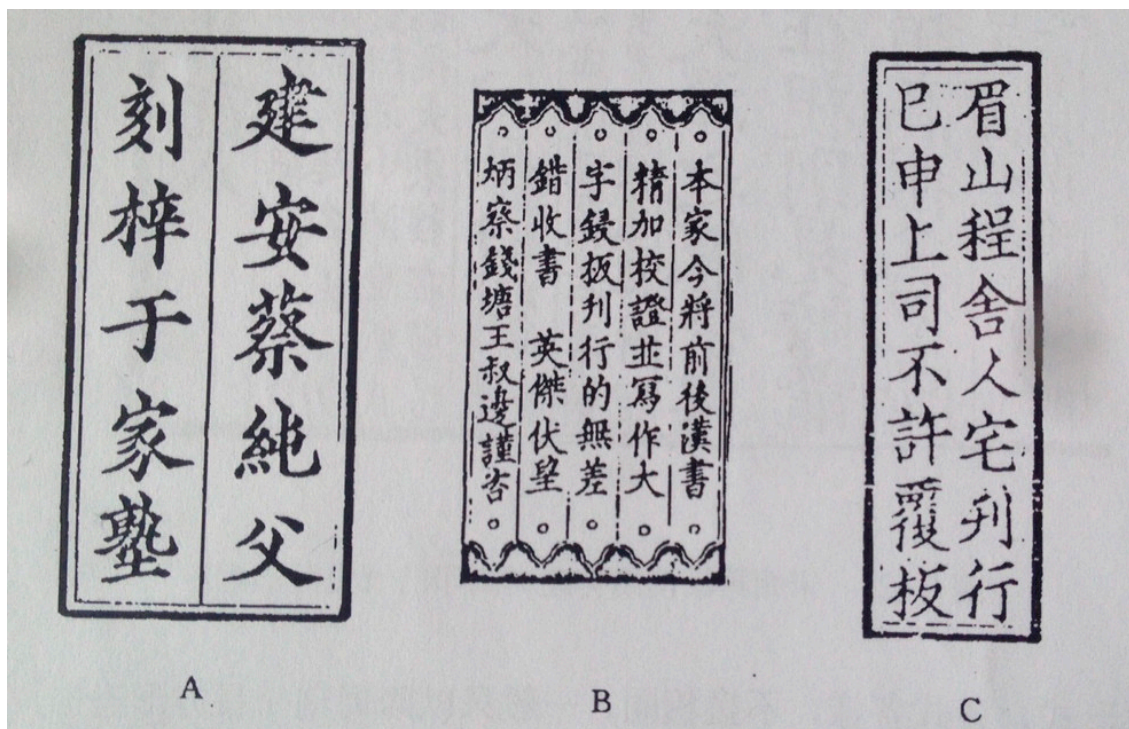 建安蔡純父
刻梓于家塾
A
本家今將前後漢書
精加校證並寫作大
字鋟板刊行的無差
錯收書 英傑伏望
炳察錢塘王叔邊謹咨
B
眉山程舍人宅刊行
已申上司不許覆板
C